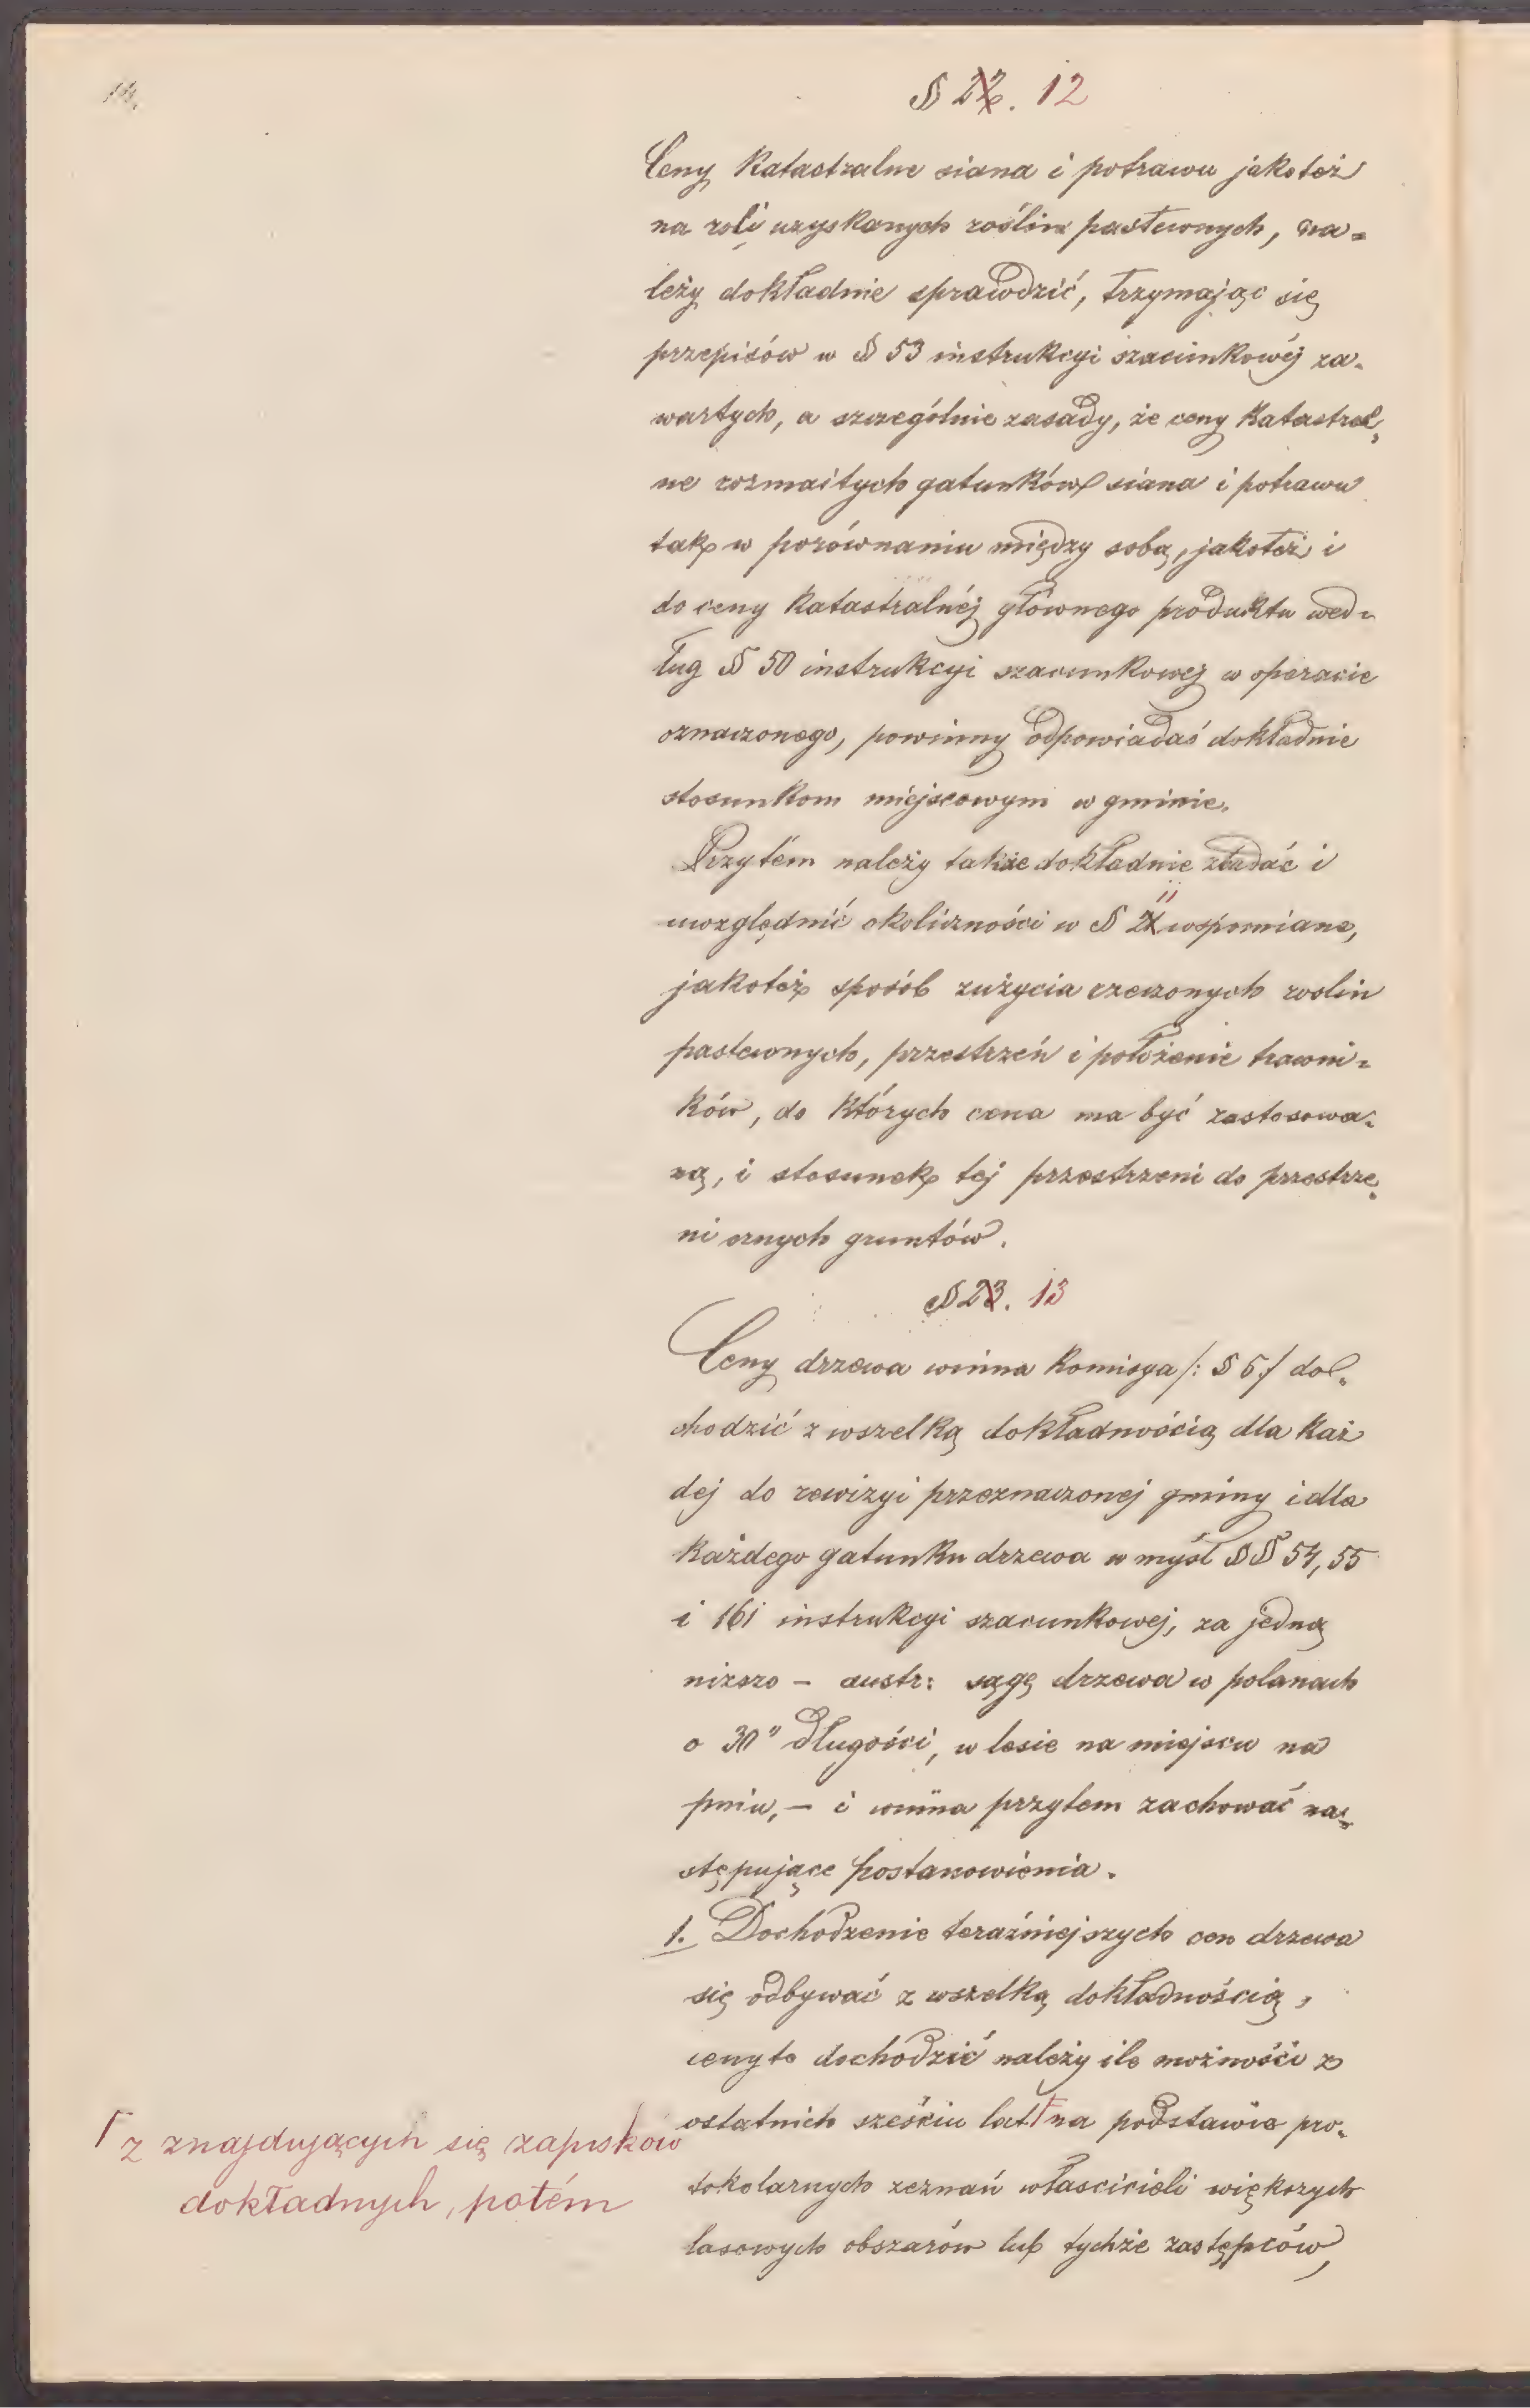 14.
§ 22. 12
Ceny katastralne siana i potrawu jakoteż
na roli uzyskanych roślin pastewnych, na=
leży dokładnie sprawdzić, trzymając się
przepisów w § 53 instrukcyi szacunkowéj za=
wartych, a szczególnie zasady, że ceny katastral=
ne rozmaitych gatunków siana i potrawu
tak w porównaniu między sobą, jakoteż i
do ceny katastralnéj głównego produktu wed=
ług § 50 instrukcyi szacunkowej w operacie
oznaczonego, powinny odpowiadać dokładnie
stosunkom miejscowym w gminie.
Przytém należy także dokładnie zbadać i
uwzględnić okoliczności w § 21 11 wspomniane,
jakoteż sposób zużycia rzeczonych roslin
pastewnych, przestrzeń i położenie trawni=
ków, do których cena ma być zastosowa=
ną, i stosunek tej przestrzeni do przestrze=
ni ornych gruntów.
§ 23. 13
Ceny drzewa winna komisya /: § 6 :/ do=
chodzić z wszelką dokładnością dla każ
dej do rewizyi przeznaczonej gminy i dla
każdego gatunku drzewa w myśl §§ 54, 55
i 161 instrukcyi szacunkowej, za jedną
niższo – austr: sągę drzewa w polanach
o 30" długości, w lesie na miejscu na
pniu, – i winna przytem zachować na=
stępujące postanowienia.
1. Dochodzenie teraźniejszych cen drzewa
się odbywać z wszelką dokładnością,
ceny te dochodzić należy ile możności z
ostatnich sześciu lat Γ na podstawie pro=
tokolarnych zeznań włascicieli większych
lasowych obszarów lub tychże zastępców,
Γ z znajdujących się zapisków
dokładnych, potém